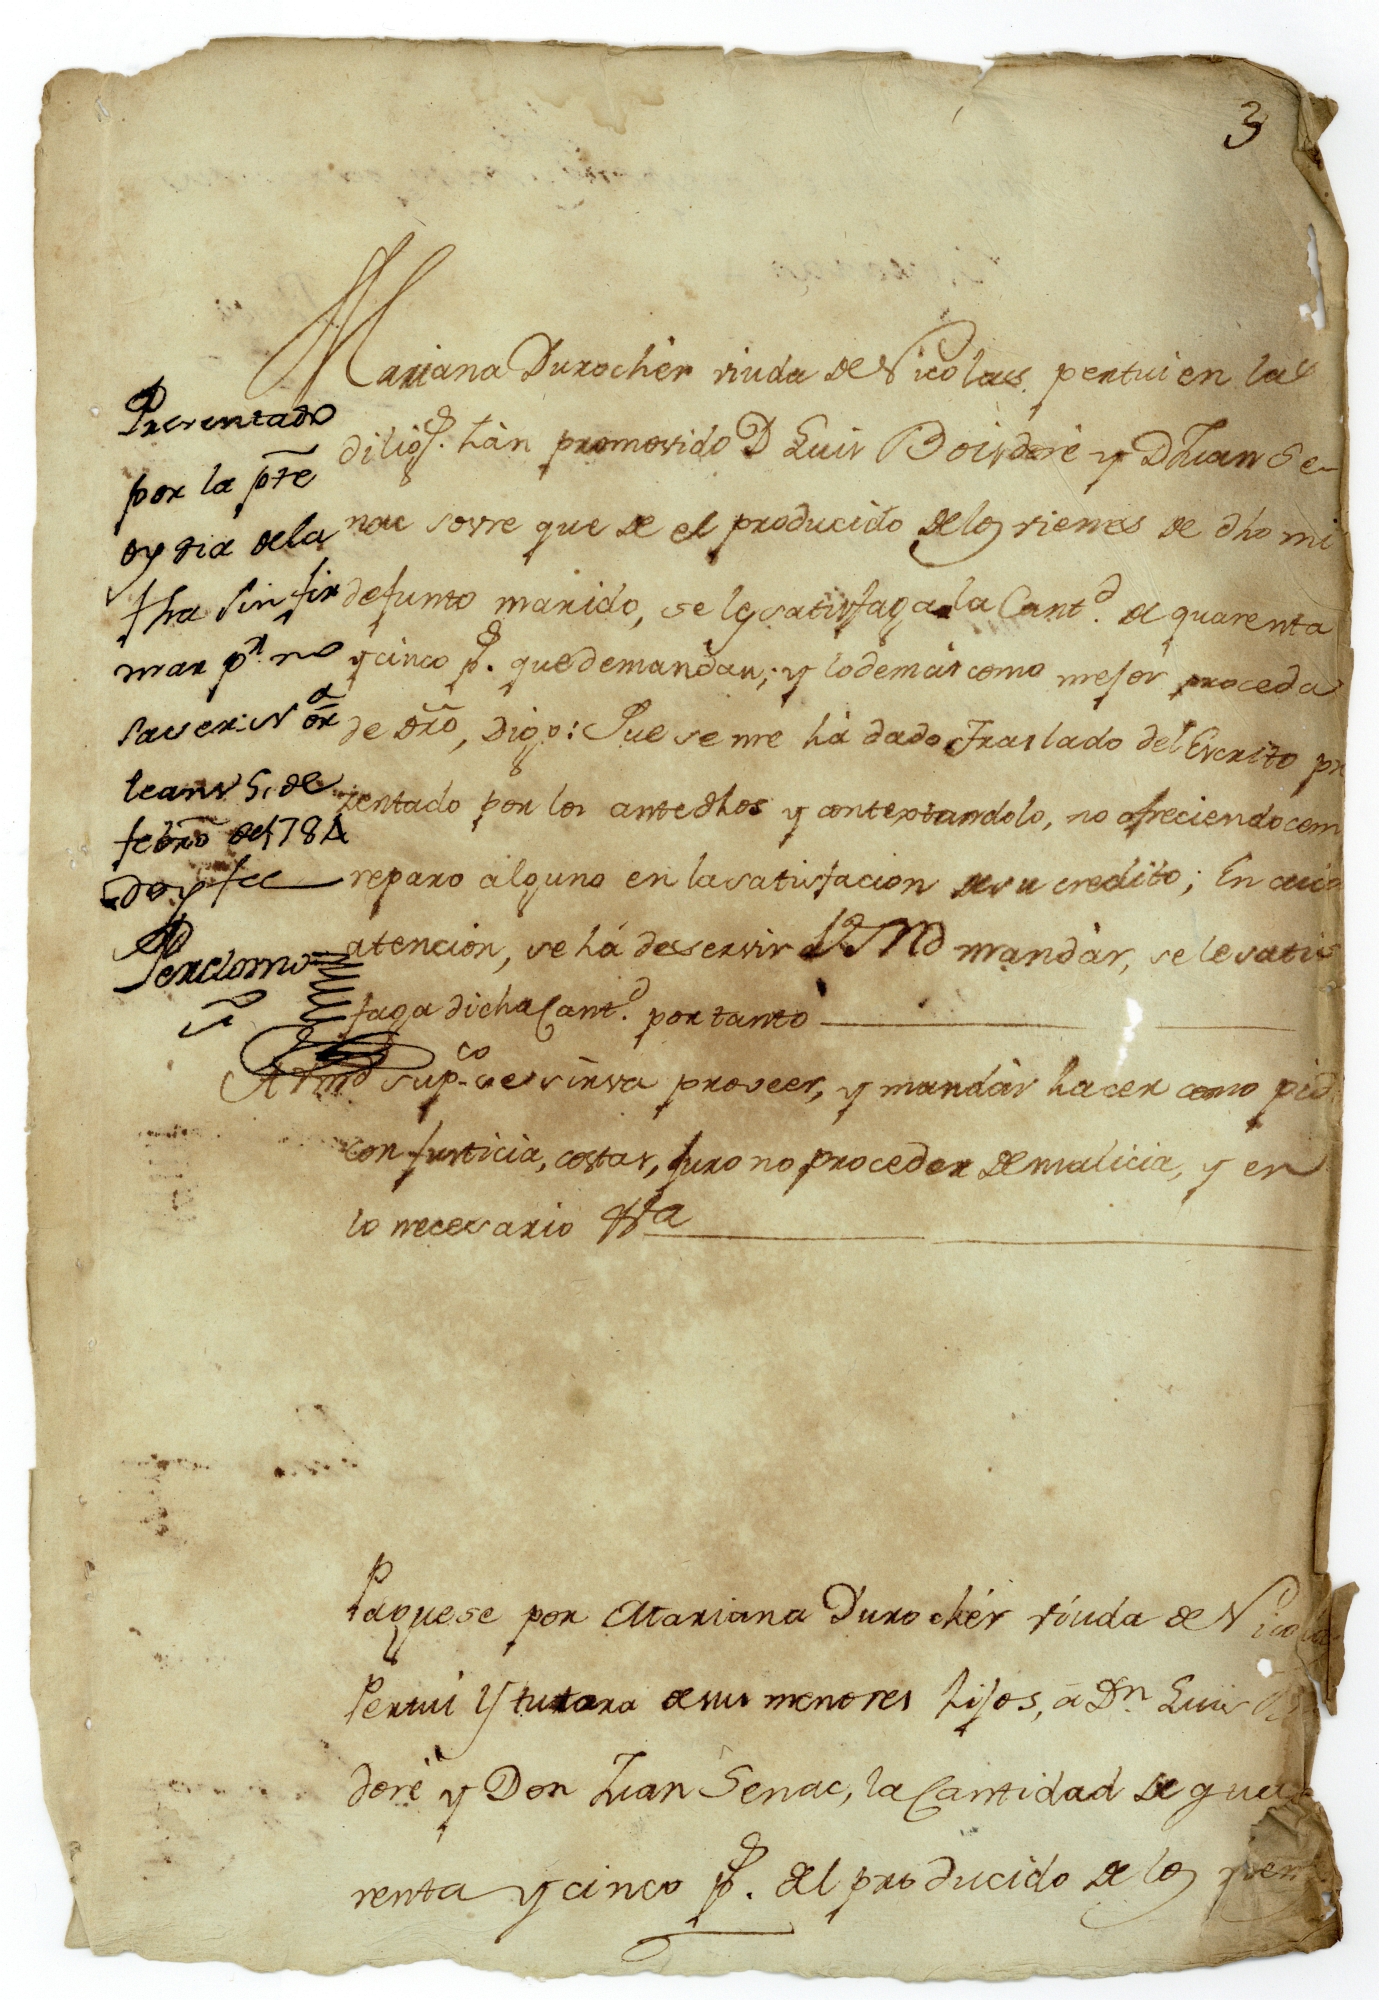 3
Mariana Durochér viuda de Nicolas pertui en las
dilig.s hàn promovido D Luis Boisdoré y D Juan Se-
nac sovre que de el producido de los vienes de dho mi
defunto marido, se les satisfaga la Cant.d de quarenta
y cinco p.s que demandan; y lo demas como mejor proceda
de dro, Digo: Que se me há dado Traslado del Escrito pre
zentado por los antedhos y contextandolo, no ofreciendoceme
reparo alguno en la satisfacion de su credito; En cuia
atención, se há de servir Vmd mandàr, se le satis
faga dicha Cant.d por tanto
A Vmd sup.co se sirva proveer, y mandàr hacer como pido
con justicia, costas, juro no proceder de malicia, y en
lo necesario &a
Presentado
por la pte
oy dia de la
fha sin fir
mar pr. no
saver: N a
or
leans 5, de
febro de 1784
doy fee
Perdomo
Paguese por Mariana Durochér viuda de Nicolas
Pertui Y tutora de sus menores hijos, á Dn Luis
doré y Don Juan Senac, la Cantidad de qua
renta y cinco p.s del producido de los vien